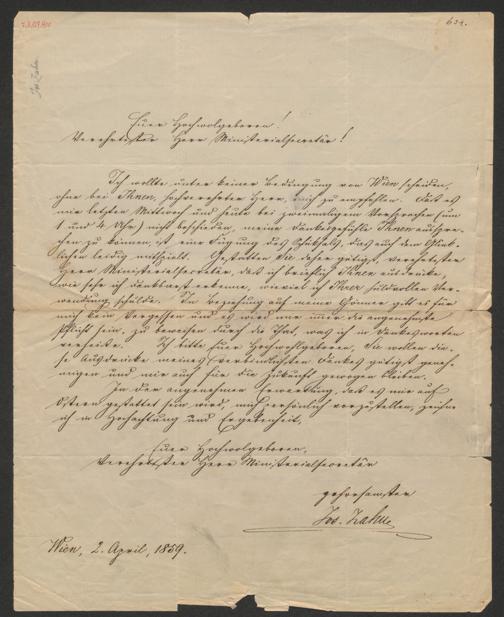 634.
Jos. Zahn
Euer Hochwolgeboren!
Verehrtester Herr Ministerialsecretär!
Ich wollte unter keiner Bedingung von Wien scheiden,
ohne bei Ihnen, hochverehrter Herr, mich zu empfehlen. Daß es
mir letzten Mittwoch und heute bei zweimaligem Vorsprechen (um
1 und 4 Uhr) nicht beschieden, meine Dankesgefühle Ihnen ausspre-
chen zu können, ist eine Fügung des Schicksals, das auch dem Glück-
lichen leidig mitspielt. Gestatten Sie daher gütigst, verehrtester
Herr Ministerialsecretär, daß ich brieflich Ihnen ausdrücke,
wie sehr ich dankbarst erkenne, wieviel ich Ihrer huldvollen Ver-
wendung schulde. In Beziehung auf meine Gönner gibt es für
mich kein Vergessen und es wird mir immer die angenehmste
Pflicht sein, zu beweisen durch die That, was ich in Dankesworten
Ich bitte Euer Hochwolgeboren, Sie wollen die-
se Ausdrücke meines verbindlichsten Dankes gütigst geneh-
migen und mir auch für die Zukunft gewogen bleiben.
In der angenehmen Erwartung, daß es mir auf
Ostern gestattet sein wird, mich persönlich vorzustellen, zeichne
ich in Hochachtung und Ergebenheit,
Euer Hochwolgeboren,
Verehrtester Herr Ministerialsecretär
gehorsamster
Jos. Zahn
Wien, 2. April, 1859.